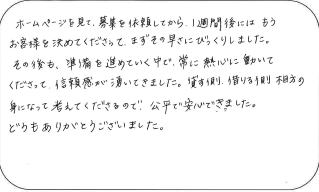 ホームページを見て、募集を依頼してから、1週間後には もう
お客様を決めてくださって、まずその早さにびっくりしました。
その後も、準備を進めていく中で、常に熱心に動いて
くださって、信頼感が湧いてきました。貸す側、借りる側 相方の
身になって考えてくださるので、公平で安心できました。
どうもありがとうございました。